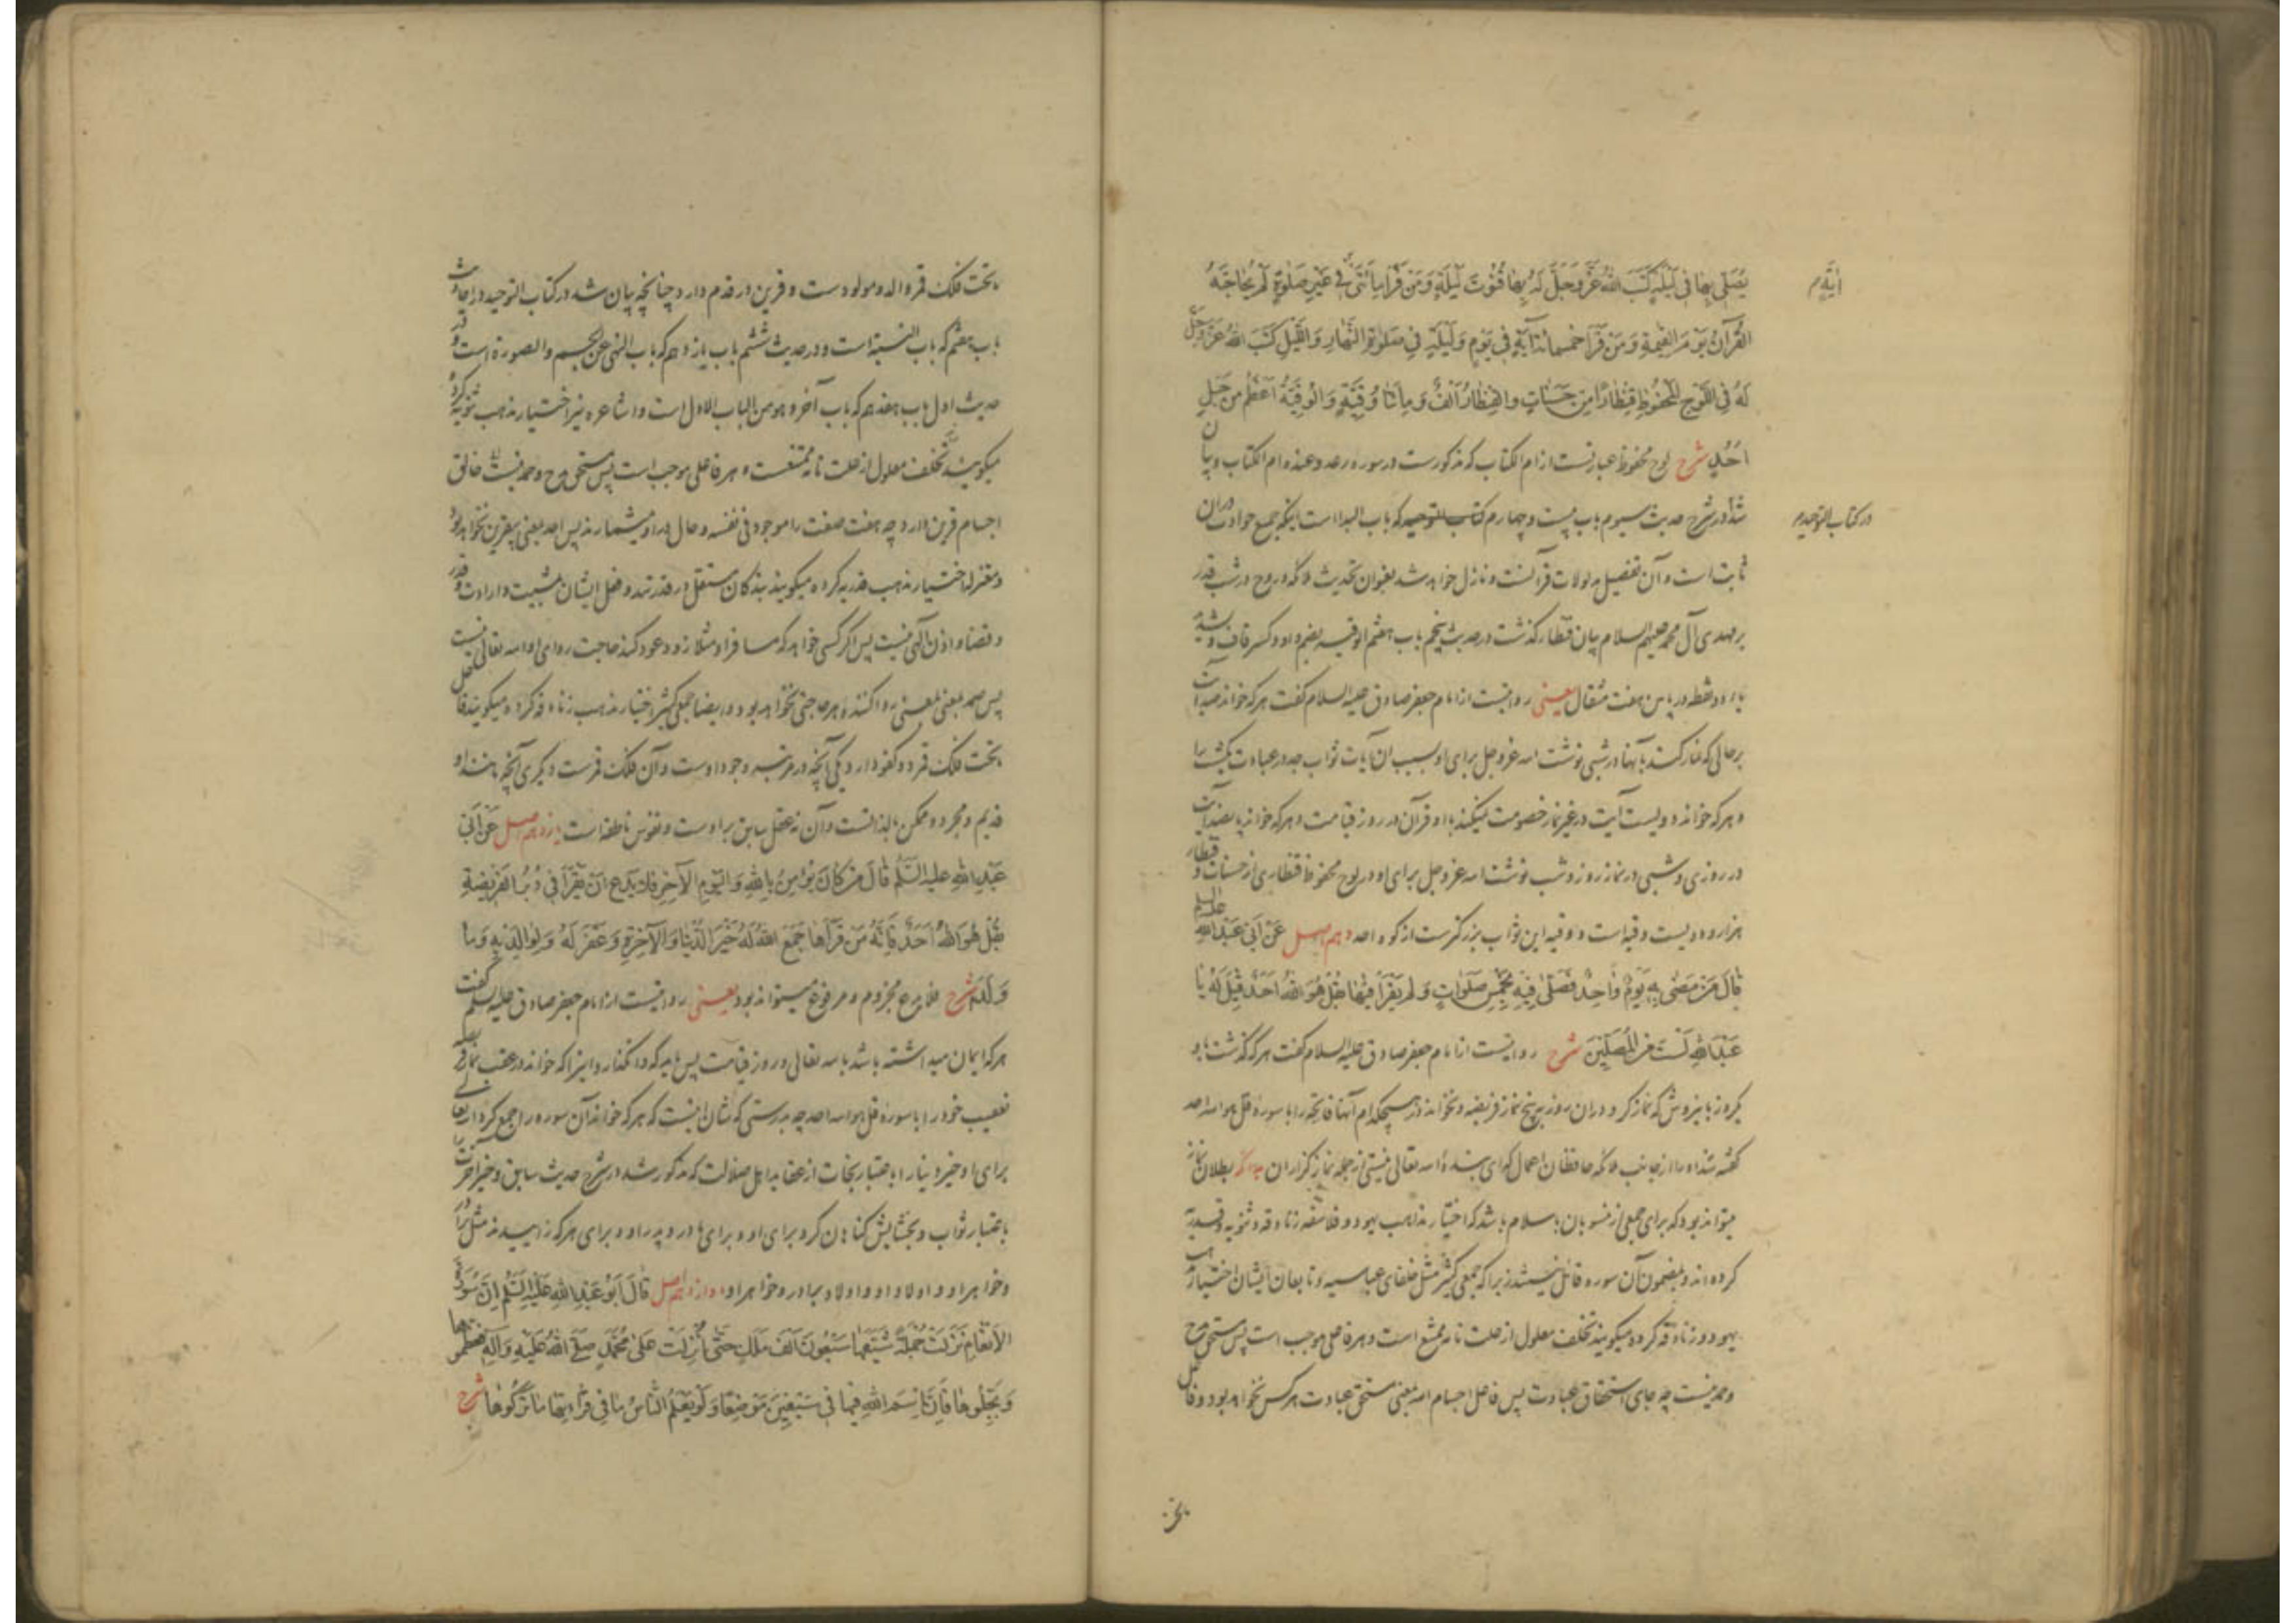 يُصَلّي بِها في لَيْلَةٍ كَتَبَ اللهُ عَزَّ وَجَلَّ لَهُ بِها قُنُوتَ لَيْلَةٍ وَمَنْ قَرَأَ مِائَتَيْ في غَيْرِ صَلوةٍ لَمْ يُحاجِّهُ
آيَةٍ م
القُرْآنُ يَوْمَ القِيمَةِ وَمَنْ قَرَأَ خَمْسَمِائَةِ آيَةٍ في يَوْمٍ وَلَيْلَةٍ في صَلوةِ النَّهارِ وَاللَّيْلِ كَتَبَ اللهُ عَزَّ وَجَلَّ
لَهُ فِي اللَّوْحِ المَحْفُوظِ قِنْطاراً مِنْ حَسَناتٍ وَالقِنْطارُ اَلْفٌ وَمِائَتا وُقِيَّةٍ وَالوُقِيَّةُ اَعْظَمُ مِنْ جَبَلِ
اُحُدٍ شرح لوح محفوظ عبارتست از ام الکتاب که مذکورست در سوره رعد وعنده ام الکتاب وبیان
شد در شرح حدیث سیوم باب بیست وچهارم کتاب التوحید که باب البداء است اینکه جمیع حوادث دران
در کتاب التوحید م
ثابت است وآن تفصیل مدلولات قرآنست ونازل خواهد شد بعنوان تحدیث ملائکه وروح در شب قدر
بر مهدی آل محمد علیهم السلام بیان قنطار گذشت در حدیث پنجم باب هفتم الوقیه بضم واو وکسر قاف وتشدید
یاء دو نقطه در پایین هفت مثقال یعنی روایتست از امام جعفر صادق علیه السلام گفت هر که خواند صد آیت
بر حالی که نماز کند بآنها در شبی نوشت الله عزوجل برای او بسبب آن آیات ثواب جد در عبادت یکشب را
وهر که خواند دویست آیت در غیر نماز خصومت نمیکند با او قرآن در روز قیامت وهر که خواند پانصد آیت
در روزی وشبی در نماز روز وشب نوشت الله عزوجل برای او در لوح محفوظ قنطاری از حسنات وقنطار
هزار ودویست وقیه است ووقیه این ثواب بزرگترست از کوه احد دهم اصل عَنْ اَبي عَبْدِ اللهِ علیه السلم
قالَ مَنْ مَضى بِهِ يَوْمٌ واحِدٌ فَصَلّى فيهِ بِخَمْسِ صَلَواتٍ وَلَمْ يَقْرَأْ فيها بِقُلْ هُوَ اللهُ اَحَدٌ قيلَ لَهُ يا
عَبْدَ اللهِ لَسْتَ مِنَ المُصَلّينَ شرح روایتست از امام جعفر صادق علیه السلام گفت هر که گذشت باو
یکروز باین روش که نماز کرد دران روز به پنج نماز فریضه ونخواند در هیچکدام آنها فاتحه را با سوره قل هو الله احد
گفته شد او را از جانب ملائکه حافظان اعمال که ای بنده الله تعالی نیستی از جمله نماز گزاران بطلان نماز
میتواند بود که برای جمعی از منسوبان باسلام باشد که اختیار مذاهب یهود وفلاسفه زنادقه وثنویه وقدریه
کرده اند وبمضمون آن سوره قائل نیستند زیرا که جمعی کثیر مثل خلفای عباسیه وتابعان ایشان اختیار مذهب
یهود وزنادقه کرده میگویند تخلف معلول از علت تامه ممتنع است وهر فاعل موجب است پس مستحق مدح
وحمد نیست چه جای استحقاق عبادت پس فاعل اجسام اله بمعنی مستحق عبادت هر کس نخواهد بود وفاعل
تحت فلک قمر والد ومولودست وقرین در قدم دارد چنانچه بیان شد در کتاب التوحید در احادیث
باب هفتم که باب النسبة است ودر حدیث ششم باب یازدهم که باب النهی عن الجسم والصورة است ودر
حدیث اول باب هفدهم که باب آخر وهو من الباب الاول است واشاعره نیز اختیار مذهب ثنویه کرده
میگویند تخلف معلول از علت تامه ممتنعست وهر فاعلی موجب است پس مستحق مدح وحمد نیست خالق
اجسام قرین دارد چه هفت صفت را موجود فی نفسه وحال در او میشمارند پس احد بمعنی بیقرین نخواهد بود
ومعتزله اختیار مذهب قدریه کرده میگویند بندگان مستقل در قدرتند وفعل ایشان بمشیت وارادت وقدر
وقضا واذن الهی نیست پس اگر کسی خواهد که مسافر او مثلا زود عود کند حاجت روای او الله تعالی نیست
پس صمد بمعنی روا کننده هر حاجتی نخواهد بود وایضا جمعی کثیر اختیار مذهب زنادقه کرده میگویند فاعل
تحت فلک قمر دو کفو دارد یکی آنچه در مرتبه وجود اوست وآن فلک قمرست دیگری آنچه مانند او
قدیم ومجرد وممکن بالذاتست وآن نه عقل سابق بر اوست ونفوس ناطقه است یازدهم اصل عَنْ اَبي
عَبْدِ اللهِ عليه السّلم قالَ مَنْ كانَ يُؤْمِنُ بِاللهِ وَاليَوْمِ الآخِرِ فَلا يَدَعْ اَنْ يَقْرَأَ في دُبُرِ الفَريضَةِ
بِقُلْ هُوَ اللهُ اَحَدٌ فَاِنَّهُ مَنْ قَرَأَها جَمَعَ اللهُ لَهُ خَيْرَ الدُّنْيا وَالآخِرَةِ وَغَفَرَ لَهُ وَلِوالِدَيْهِ وَما
وَلَدا شرح فلا یدع مجزوم ومرفوع میتواند بود یعنی روایتست از امام جعفر صادق علیه السلم گفت
هر که ایمان میداشته باشد بالله تعالی وروز قیامت پس باید که وا نگذارد اینرا که خواند در عقب نماز فریضه
تعقیب خود را با سوره قل هو الله احد چه بدرستی که شأن اینست که هر که خواند آن سوره را جمع کرد الله تعالی
برای او خیر دنیا را باعتبار نجات از عقاید اهل ضلالت که مذکور شد در شرح حدیث سابق وخیر آخرت را
باعتبار ثواب وبخشایش گناهان کرد برای او وبرای مادر وپدر او وبرای هر که زاییدند مثل برادر
وخواهر او واولاد او واولاد برادر وخواهر او دوازدهم اصل قالَ اَبُو عَبْدِ اللهِ عَلَيْهِ السَّلَمُ اِنَّ سُورَةَ
الاَنْعامِ نَزَلَتْ جُمْلَةً شَيَّعَها سَبْعُونَ اَلْفَ مَلَكٍ حَتّى اُنْزِلَتْ عَلى مُحَمَّدٍ صَلَّى اللهُ عَلَيْهِ وَآلِهِ فَعَظِّمُوها
وَبَجِّلُوها فَاِنَّ اسْمَ اللهِ فيها في سَبْعينَ مَوْضِعاً وَلَوْ يَعْلَمُ النّاسُ ما في قِراءَتِها ما تَرَكُوها شرح